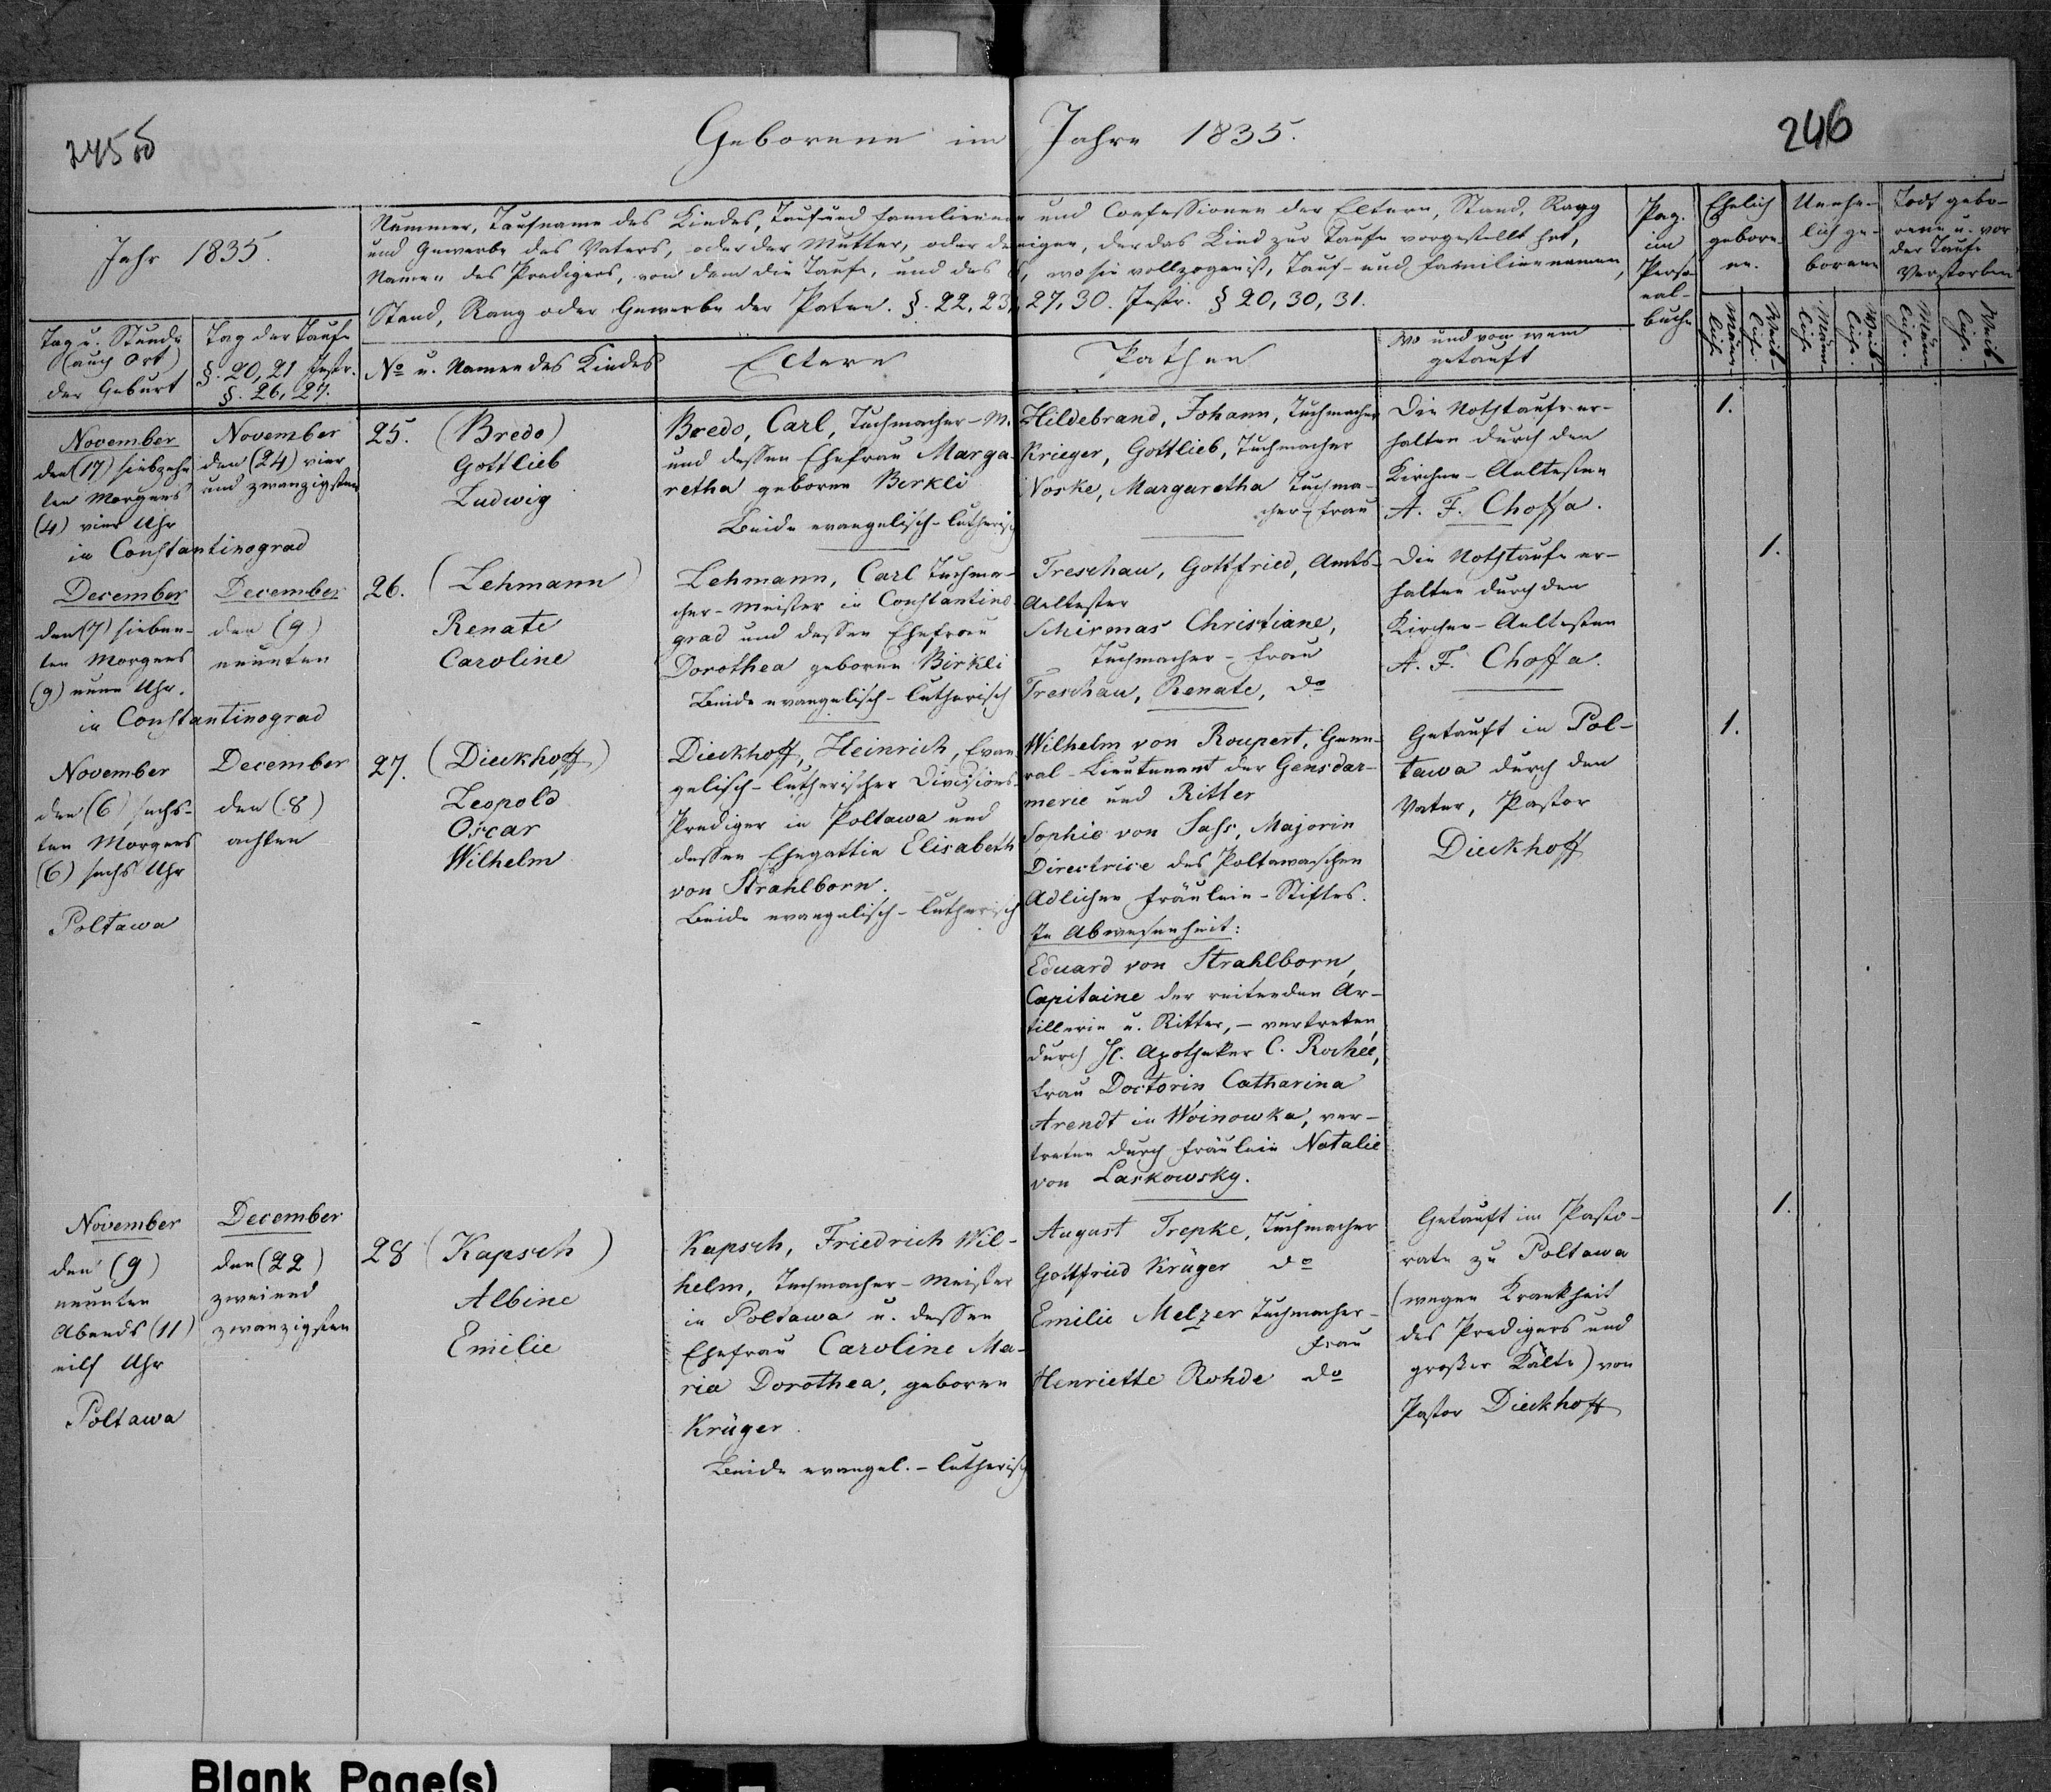 245
Geborene im Jahre 1835.
246
Jahr 1835.
Nummer, Taufname des Kindes, Tauf und Familiennamen und Confessionen der Eltern, Stand, Rang
und Gewerbe des Vaters, oder der Mutter, oder desjenigen, der das Kind zur Taufe vorgestellt hat,
Namen des Predigers, von dem die Taufe, und des wo sie vollzogen ist, Tauf- und Familiennamen,
Stand, Rang oder Gewerbe der Paten. §. 22, 23, 27, 30. Instr. § 20, 30, 31.
Pag.
im
Perso
nal-
buche
Ehelich
gebore-
ne.
Unehe-
lich ge-
borene
Todt gebo-
rene u. vor
der Taufe
Verstorben
Tag u. Stunde
(auch Ort)
der Geburt
Tag der Taufe
§. 20, 21 Instr.
§. 26, 27.
No u. Namen des Kindes
Eltern
Pathen
Wo und von wem
getauft
Männ-
liche.
Weib-
liche.
Männ-
liche
Weib-
liche.
Männ-
liche.
Weib-
liche
November
den (17) siebzehn
ten Morgens
(4) vier Uhr
in Constantinograd
November
den (24) vier
und zwanzigsten
25. (Bredo)
Gottlieb
Ludwig
Bredo, Carl, Tuchmacher-M.
und dessen Ehefrau Marga-
retha geborne Berkli
Beide evangelisch-lutherisch
Hildebrand, Johann, Tuchmacher
Krieger, Gottlieb, Tuchmacher
Noske, Margaretha Tuchma-
cher-frau
Die Nothtaufe er-
halten durch den
Kirchen-Aeltesten
A. F. Choffa.
1.
December
den (7) sieben-
ten Morgens
(9) neun Uhr.
in Constantinograd
December
den (9)
neunten
26. (Lehmann)
Renate
Caroline
Lehmann, Carl Tuchma-
cher-Meister in Constantino-
grad und dessen Ehefrau
Dorothea geborne Birkli
Beide evangelisch-lutherisch
Treschau, Gottfried, Amts-
Aeltester
Schirmas Christiane,
Tuchmacher-frau
Treschau, Renate, do
Die Nothtaufe er-
halten durch den
Kirchen-Aeltesten
A. F. Choffa.
1.
November
den (6) sechs-
ten Morgens
(6) sechs Uhr
Poltawa
December
den (8)
achten
27. (Dieckhoff)
Leopold
Oscar
Wilhelm
Dieckhoff, Heinrich, Evan-
gelisch-lutherischer Divisions-
Prediger in Poltawa und
dessen Ehegattin Elisabeth
von Strahlborn.
Beide evangelisch-lutherisch
Wilhelm von Roupert, Gene-
ral-Lieutenant der Gensdar-
merie und Ritter
Sophie von Sass, Majorin
Directrice des Poltawaschen
Adlichen Fräulein-Stiftes.
In Abwesenheit:
Eduard von Strahlborn,
Capitaine der reitenden Ar-
tillerie u. Ritter, - vertreten
durch H. Apotheker C. Rochée,
Frau Doctorin Catharina
Arendt in Woinowka, ver-
treten durch Fräulein Natalie
von Laskowsky.
Getauft in Pol-
tawa durch den
Vater, Pastor
Dieckhoff
1.
November
den (9)
neunten
Abends (11)
eilf Uhr
Poltawa
December
den (22)
zweiund
zwanzigsten
28 (Kapsch)
Albine
Emilie
Kapsch, Friedrich Wil-
helm, Tuchmacher-Meister
in Poltawa u. dessen
Ehefrau Caroline Ma-
ria Dorothea, geborne
Krüger.
Beide evangel.-lutherisch
August Trepke, Tuchmacher
Gottfried Krüger do
Emilie Melzer Tuchmacher-
frau
Henriette Rohde do
Getauft im Pasto-
rate zu Poltawa
(wegen Krankheit
des Predigers und
großer Kälte) von
Pastor Dieckhoff
1.
Blank Page(s)